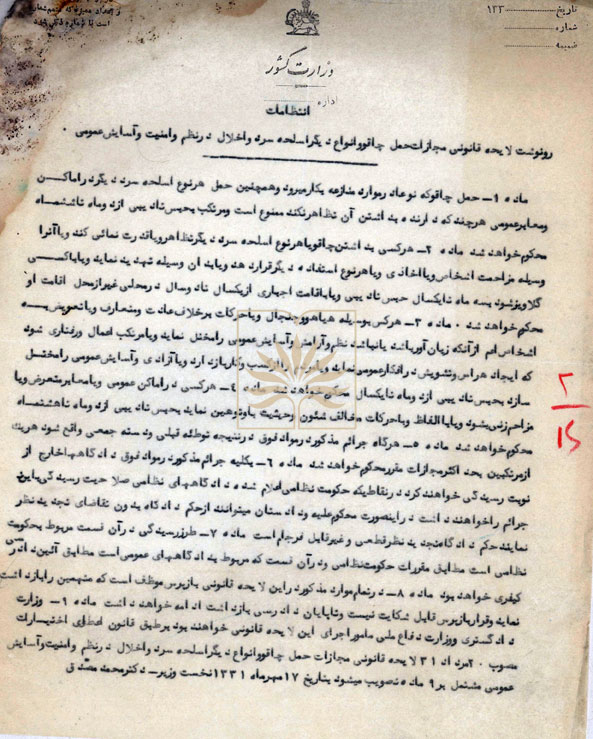 تاریخ ۱۳۳
شماره
ضمیمه
وزارت کشور
اداره
انتظامات
رونوشت لایحه قانونی مجازات حمل چاقو و انواع دیگر اسلحه سرد و اخلال در نظم و امنیت و آسایش عمومی .
ماده ۱- حمل چاقو که نوعا در موارد منازعه بکار میرود و همچنین حمل هر نوع اسلحه سرد دیگر در اماکن
و معابر عمومی هر چند که دارنده به داشتن آن تظاهر نکند ممنوع است و مرتکب بحبس تادیبی از دو ماه تا ششماه
محکوم خواهد شد ماده ۲- هر کسی به داشتن چاقو یا هر نوع اسلحه سرد دیگر تظاهر و یا قدرت نمائی کند و یا آنرا
وسیله مزاحمت اشخاص و یا اخاذی و یا هر نوع استفاده دیگر قرار دهد و یا بدان وسیله تهدید نماید و یا با کسی
گلاویز شود بسه ماه تا یکسال حبس تادیبی و یا باقامت اجباری از یکسال تا دو سال در محلی غیر از محل اقامت او
محکوم خواهد شد . ماده ۳- هر کس بوسیله هیاهو و جنجال و یا حرکات برخلاف عادت و متعارف و یا تعویض به
اشخاص اعم از آنکه زیان آور باشد یا نباشد نظم و آرامش و آسایش عمومی را مختل نماید و یا مرتکب اعمال و رفتاری شود
که ایجاد هراس و تشویش در افکار عمومی نماید و یا مردم را از کسب و کار باز دارد و یا آزادی و آسایش عمومی را مختل
سازد بحبس تادیبی از دو ماه تا یکسال محکوم خواهد شد ماده ۴- هر کسی در اماکن عمومی و یا معابر متعرض و یا
مزاحم زنی بشود و یا با الفاظ و یا حرکات مخالف شئون و حیثیت باو توهین نماید بحبس تادیبی از دو ماه تا ششماه
محکوم خواهد شد ماده ۵- هرگاه جرائم مذکور در مواد فوق در نتیجه توطئه قبلی و دسته جمعی واقع شود هریک
از مرتکبین بحد اکثر مجازات مقرر محکوم خواهد شد ماده ۶- بکلیه جرائم مذکور در مواد فوق در دادگاهها خارج از
نوبت رسیدگی خواهند کرد در نقاطیکه حکومت نظامی اعلام شده دادگاههای نظامی صلاحیت رسیدگی باین
جرائم را خواهند داشت در اینصورت محکوم علیه و دادستان میتوانند از حکم دادگاه بدوی تقاضای تجدید نظر
نمایند حکم دادگاه تجدید نظر قطعی و غیر قابل فرجام است ماده ۷- طرز رسیدگی در آن قسمت مربوط بحکومت
نظامی است مطابق مقررات حکومت نظامی و در آن قسمت که مربوط بدادگاههای عمومی است مطابق آئین دادرسی
کیفری خواهد بود ماده ۸- در تمام موارد مذکور در این لایحه قانونی بازپرس موظف است که متهمین را بازداشت
نماید و قرار بازپرس قابل شکایت نیست و تا پایان دادرسی بازداشت ادامه خواهد داشت ماده ۹- وزارت
دادگستری و وزارت دفاع ملی مامور اجرای این لایحه قانونی خواهند بود بر طبق قانون اعطای اختیارات
مصوب ۲۰ مرداد ۳۱ لایحه قانونی مجازات حمل چاقو و انواع دیگر اسلحه سرد و اخلال در نظم و امنیت و آسایش
عمومی مشتمل بر ۹ ماده تصویب میشود بتاریخ ۱۷ مهرماه ۱۳۳۱ نخست وزیر- دکتر محمد مصدق